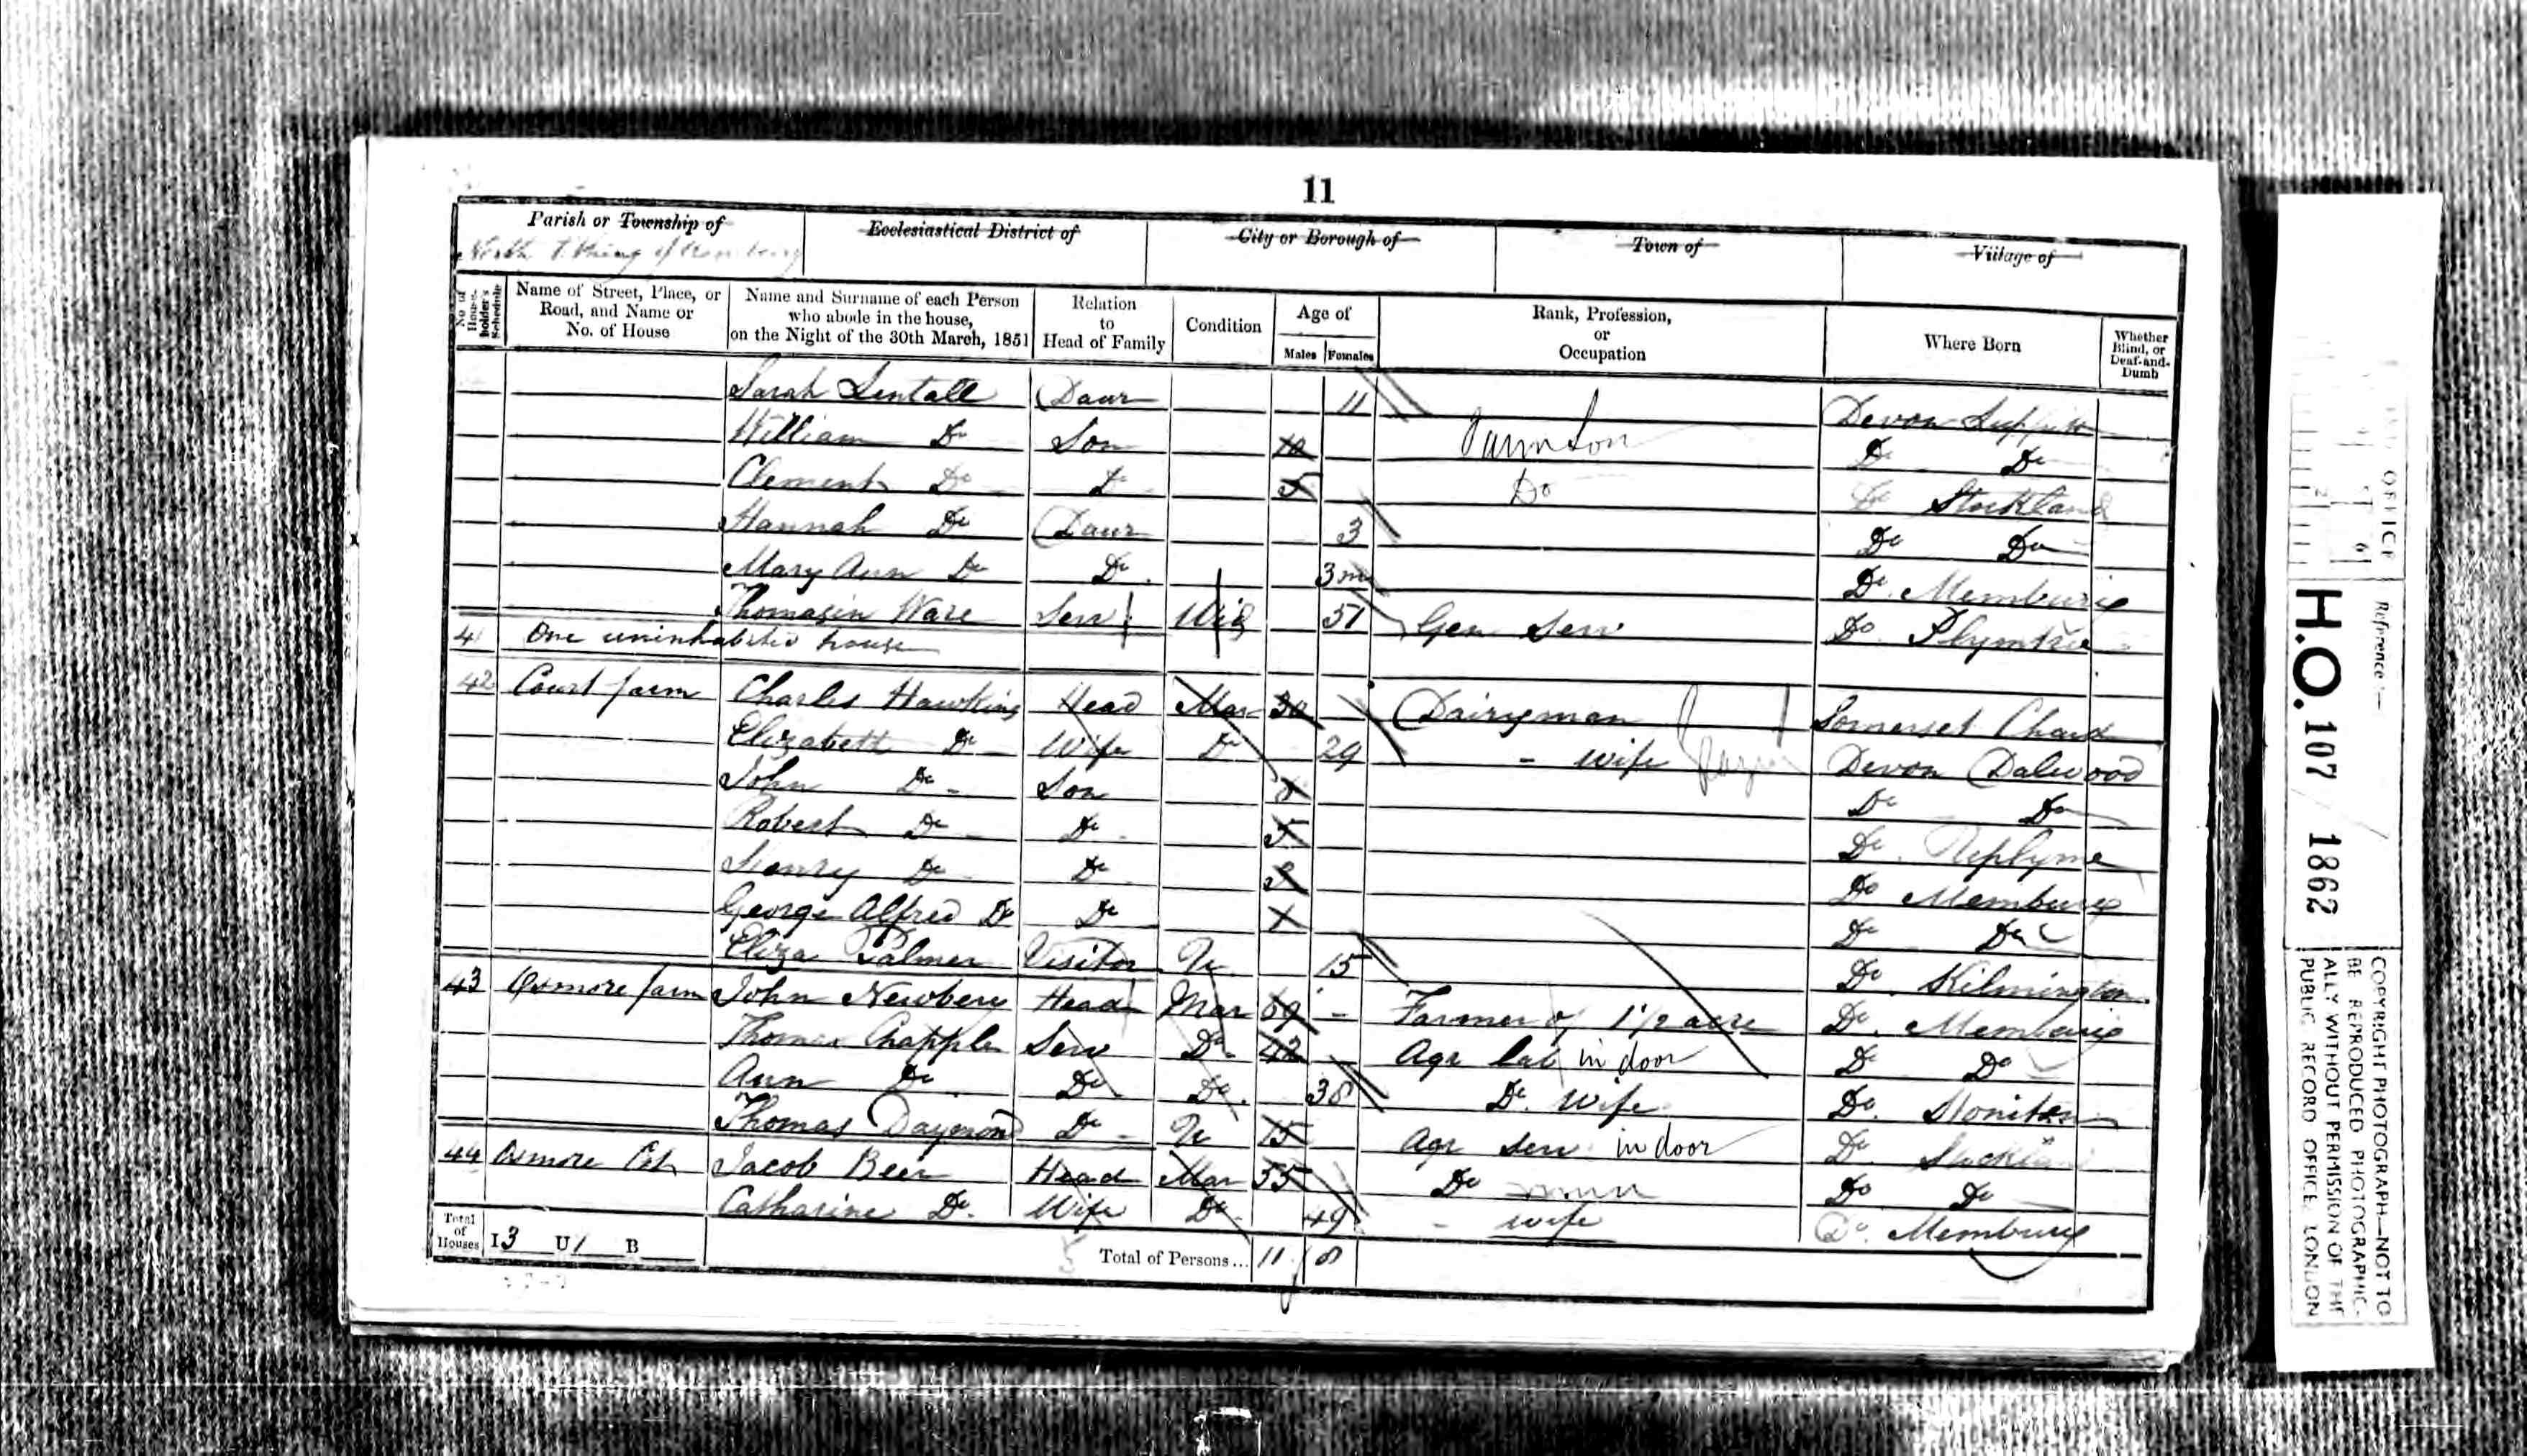 11
Parish or Township of Ecclesiastical District of City or Borough of Town of Village of
North
No. of House-holder's Schedule Name of Street, Place, or Road, and Name or No. of House Name and Surname of each Person who abode in the house, on the Night of the 30th March, 1851 Relation to Head of Family Condition Age of Males Females Rank, Profession, or Occupation Where Born Whether Blind, or Deaf-and-Dumb
Sarah Lentall Daur 11 Devon Luppitt
William Do Son 10 Do Do
Clement Do Do 5 Do Do Stockland
Hannah Do Daur 3 Do Do
Mary Ann Do Do 3m Do Membury
Thomasin Ware Serv Wid 51 Gen Serv Do Plymtree
41 One uninhabited house
42 Court farm Charles Hawkins Head Mar 30 Dairyman Somerset Chard
Elizabeth Do Wife Do 29 - wife Devon Dalwood
John Do Son Do Do
Robert Do Do 5 Do Uplyme
Henry Do Do Do Membury
George Alfred Do Do Do Do
Eliza Palmer Visitor U 15 Do Kilmington
43 Osmore farm John Newbery Head Mar 69 - Farmer of 1 1/2 acre Do Membury
Thomas Chapple Serv Do 42 Agr lab in door Do Do
Ann Do Do Do 38 Do wife Do Honiton
Thomas Dayмond Do U 15 Agr serv in door Do Stockland
44 Osmore Cot Jacob Beer Head Mar 55 Do Do Do
Catharine Do Wife Do 49 - wife Do Membury
Total of Houses I 3 U 1 B Total of Persons... 11 8
OFFICE
Reference:-
H.O. 107 / 1862
COPYRIGHT PHOTOGRAPH—NOT TO
BE REPRODUCED PHOTOGRAPHIC-
ALLY WITHOUT PERMISSION OF THE
PUBLIC RECORD OFFICE, LONDON